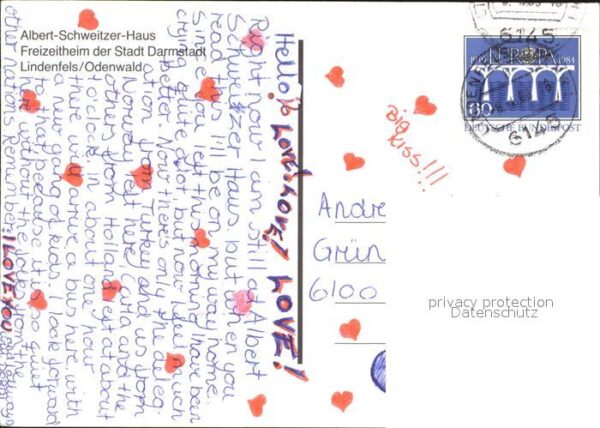 Albert-Schweitzer-Haus
Freizeitheim der Stadt Darmstadt
Lindenfels/Odenwald
Hello, LOVE! LOVE! LOVE! LOVE!
Right now I am still at Albert
Schweitzer Haus, but when you
read this I'll be on my way home.
Since you left this morning I have been
crying quite a lot, but now I feel much
better. Now there's only the deleg-
ation from Turkey and us from
Norway left here, Cata and the
others from Holland left at about
o'clock in about one hour
there will arrive a bus here, with
a new gang of kids. I look forward
to that, because it is so quiet
here without the kids from the
other nations. Remember: I LOVE YOU
big
kiss!!!
Andre
Grün
6100
6145
EUROPA
1959 1984
60
DEUTSCHE BUNDESPOST
6145
privacy protection
Datenschutz